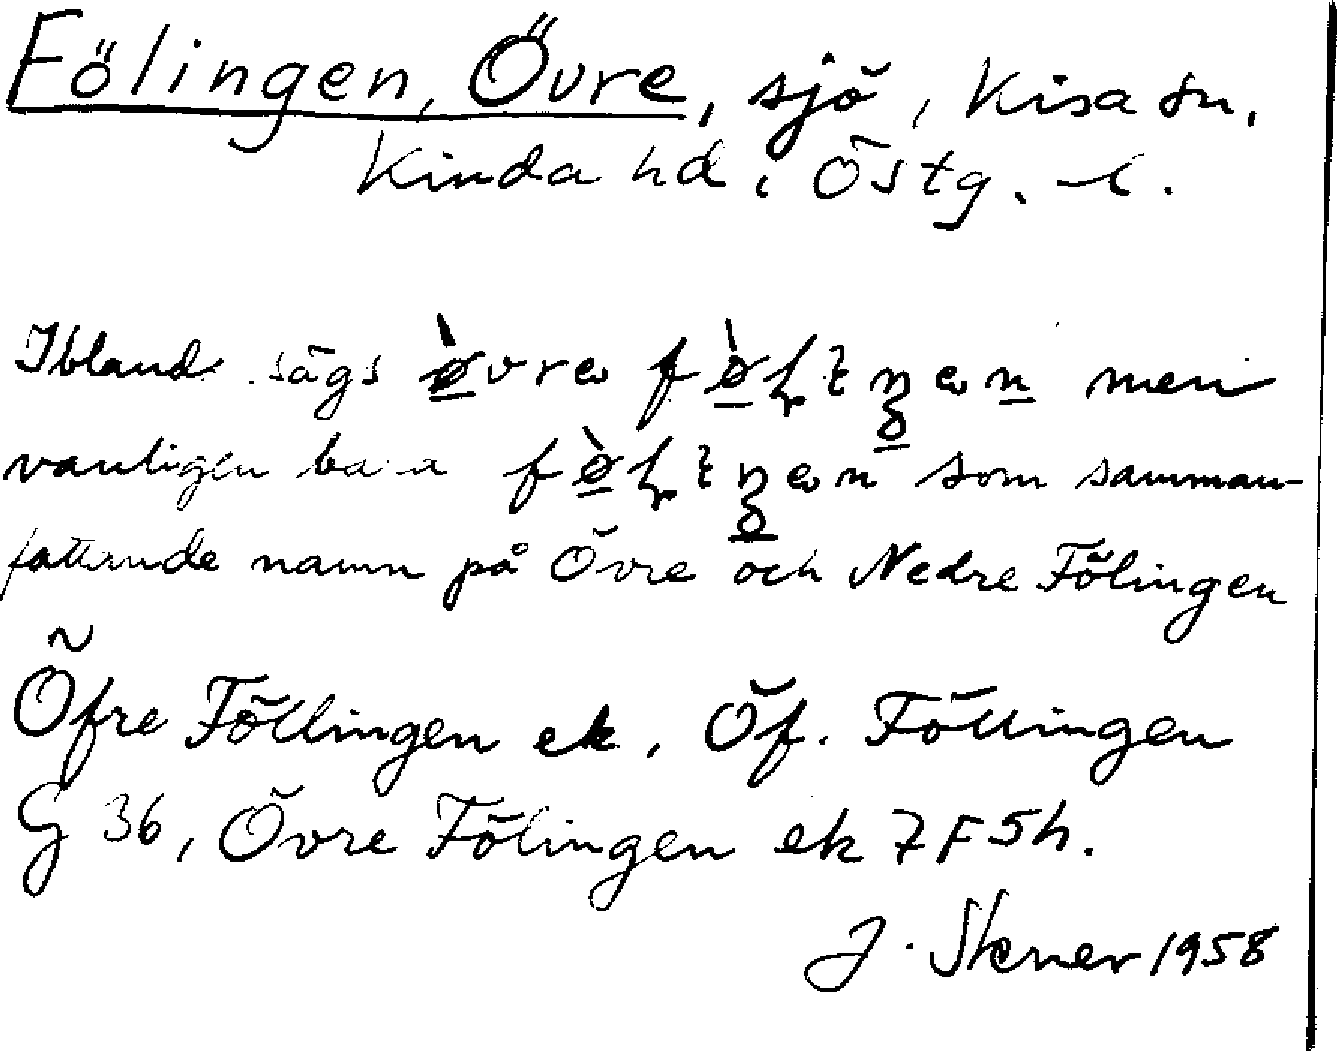 Fölingen, Övre, sjö, Kisa sn,
Kinda hd, Östg. l.
Ibland sägs men
vanligen bara som samman-
fattande namn på Övre och Nedre Fölingen
Öfre Föllingen ek, Öf. Föllingen
G 36, Övre Fölingen ek 7F5h.
J. Stener 1958